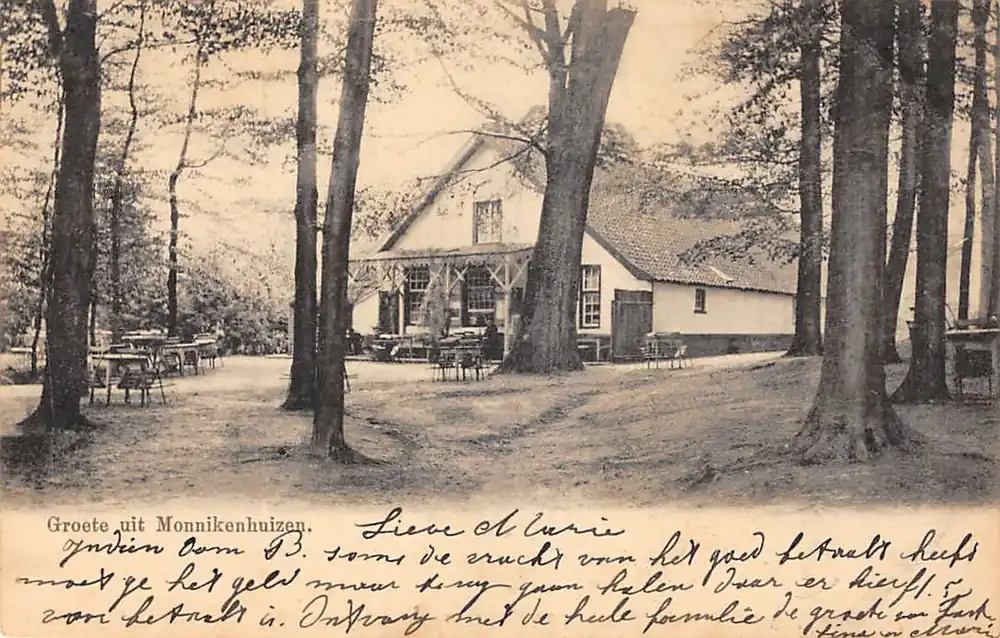 Groete uit Monnikenhuizen.
Lieve Marie
Indien Oom B. soms de vracht van het goed betaalt heeft
moet ge het geld maar terug gaan halen daar er hier f.
voor betaalt is. Ontvang met de heele familie de groete van
en Marie